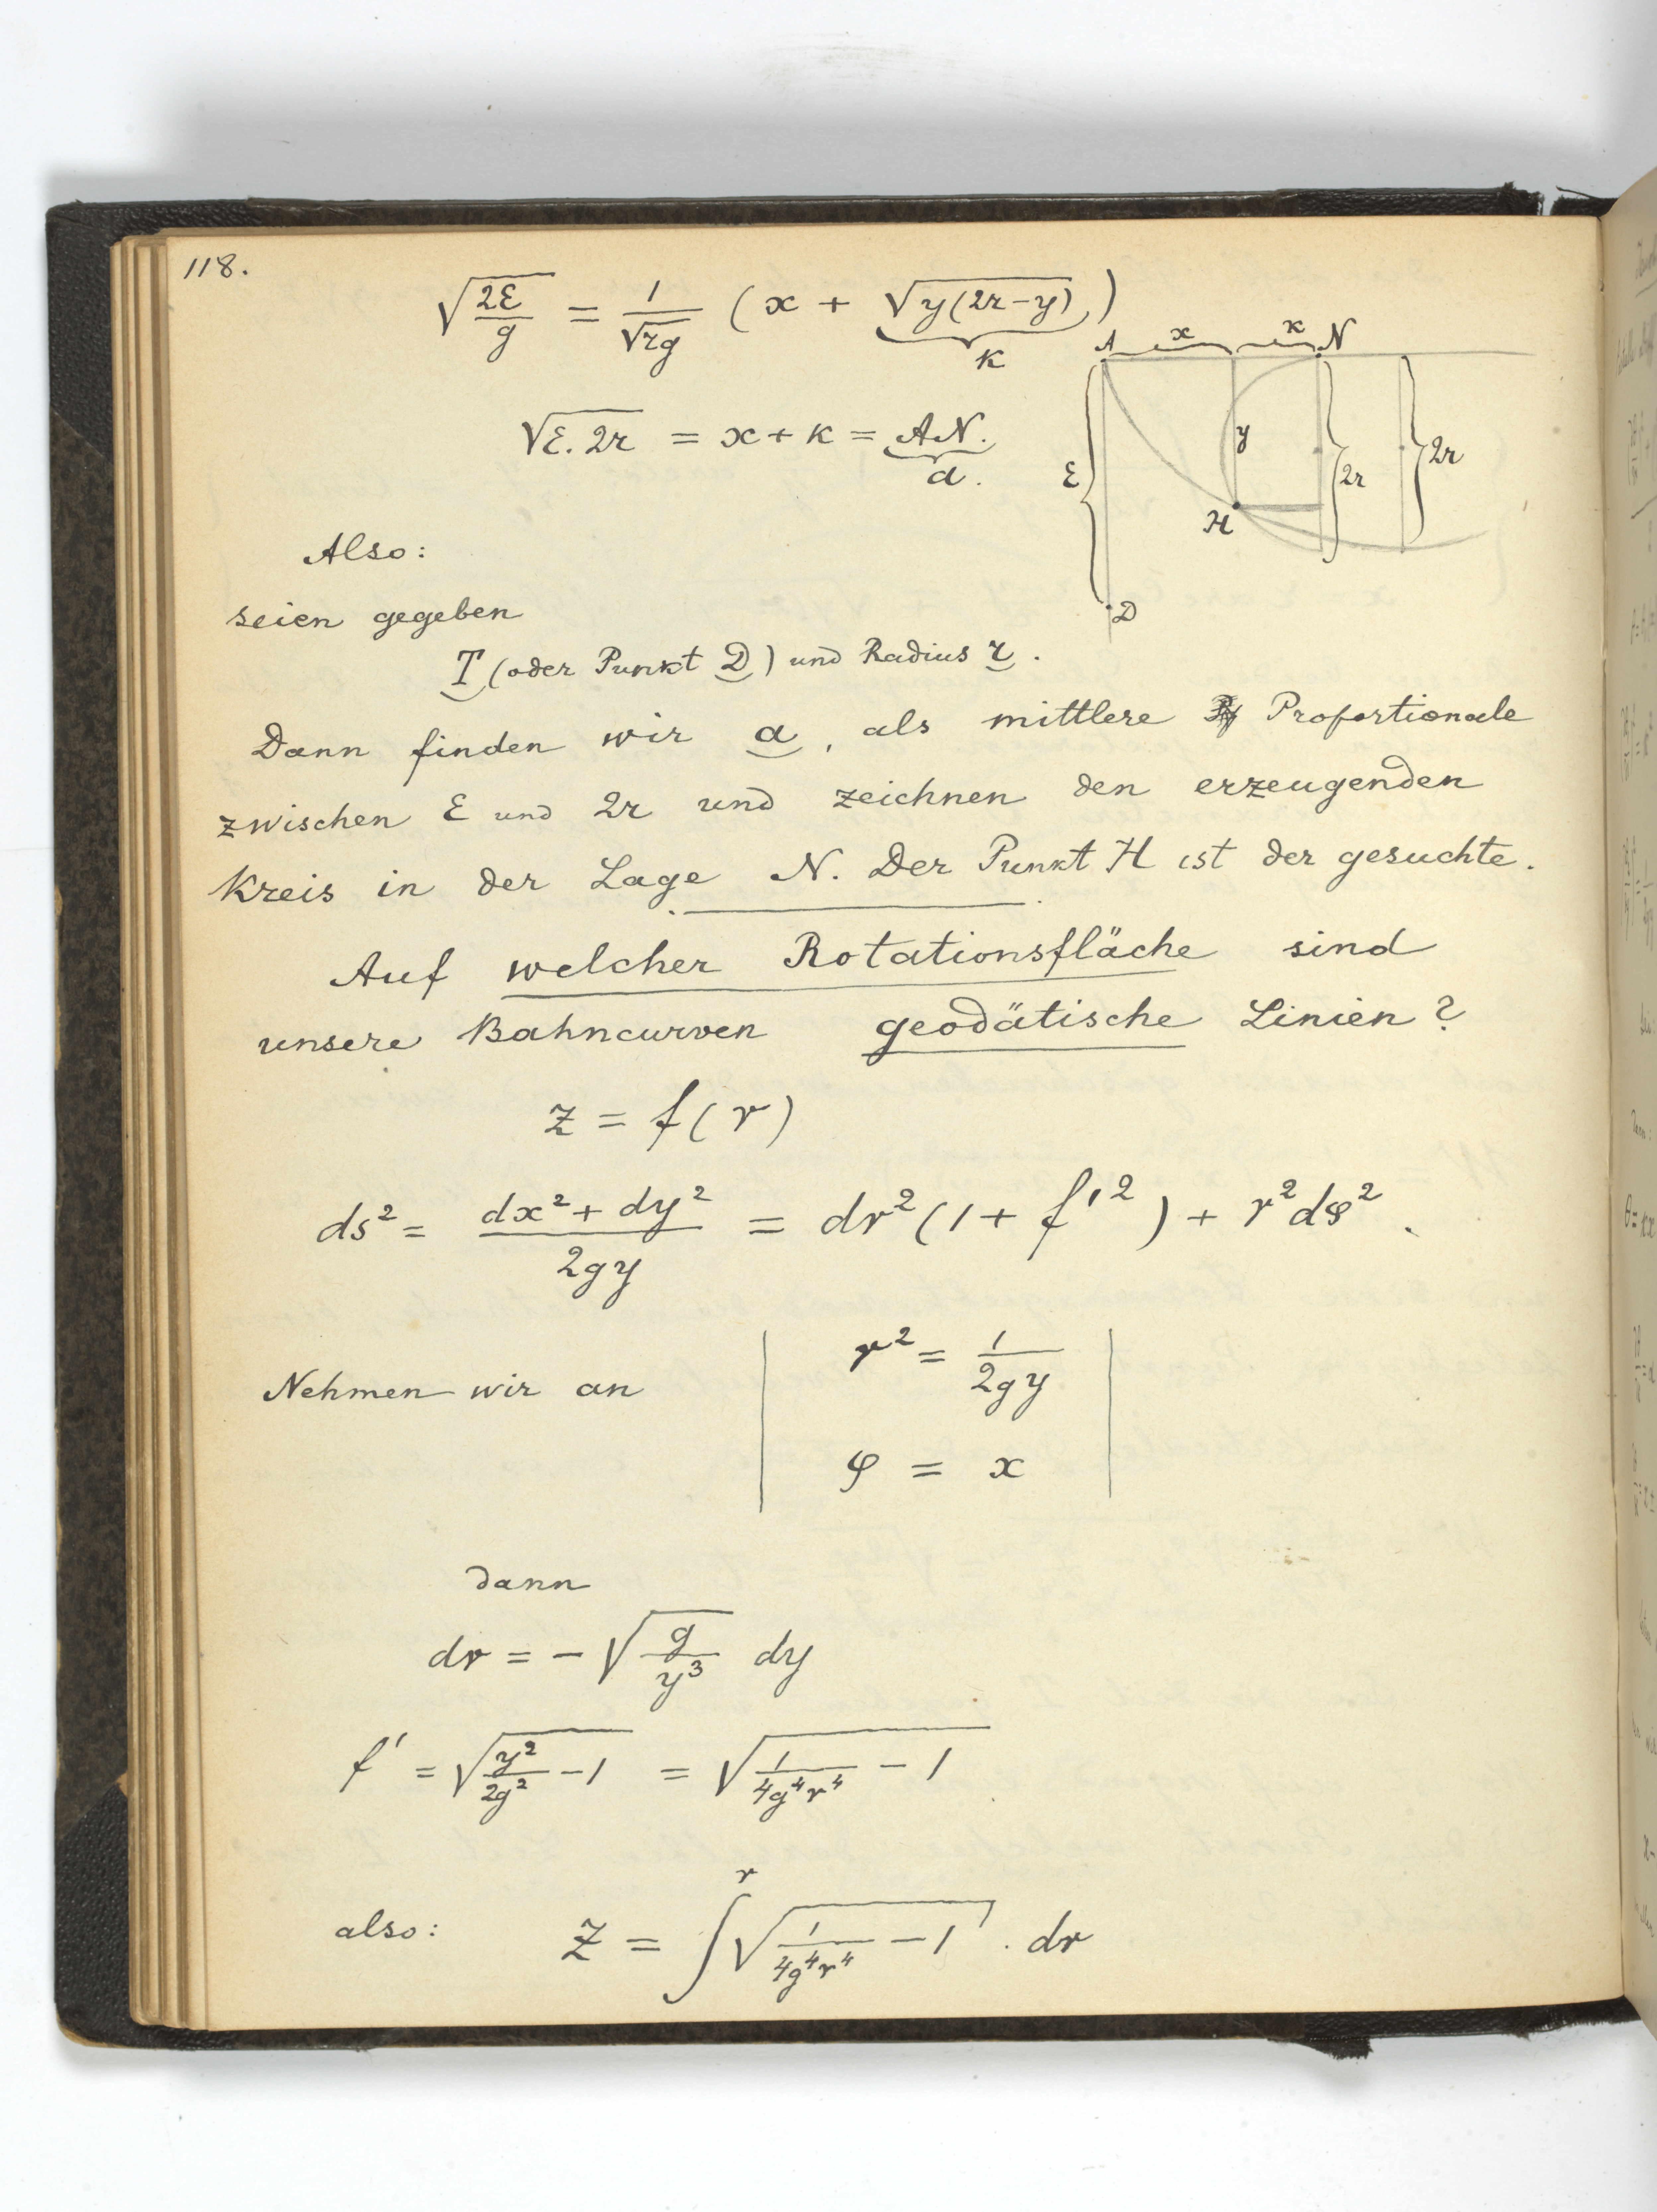 118.
√(2ε/g) = 1/√(rg) (x + √(y(2r−y)))
κ
A x κ N
√(ε.2r) = x + κ = AN.
a.
ε y 2r 2r
H
D
Also:
seien gegeben
T (oder Punkt D) und Radius r.
Dann finden wir a, als mittlere Proportionale
zwischen ε und 2r und zeichnen den erzeugenden
Kreis in der Lage N. Der Punkt H ist der gesuchte.
Auf welcher Rotationsfläche sind
unsere Bahncurven geodätische Linien?
z = f(r)
ds² = (dx² + dy²)/2gy = dr²(1 + f'²) + r²dφ².
Nehmen wir an r² = 1/2gy
φ = x
dann
dr = − √(g/y³) dy
f' = √(y²/2g² − 1) = √(1/4g⁴r⁴ − 1)
also: z = ∫^r √(1/4g⁴r⁴ − 1) . dr